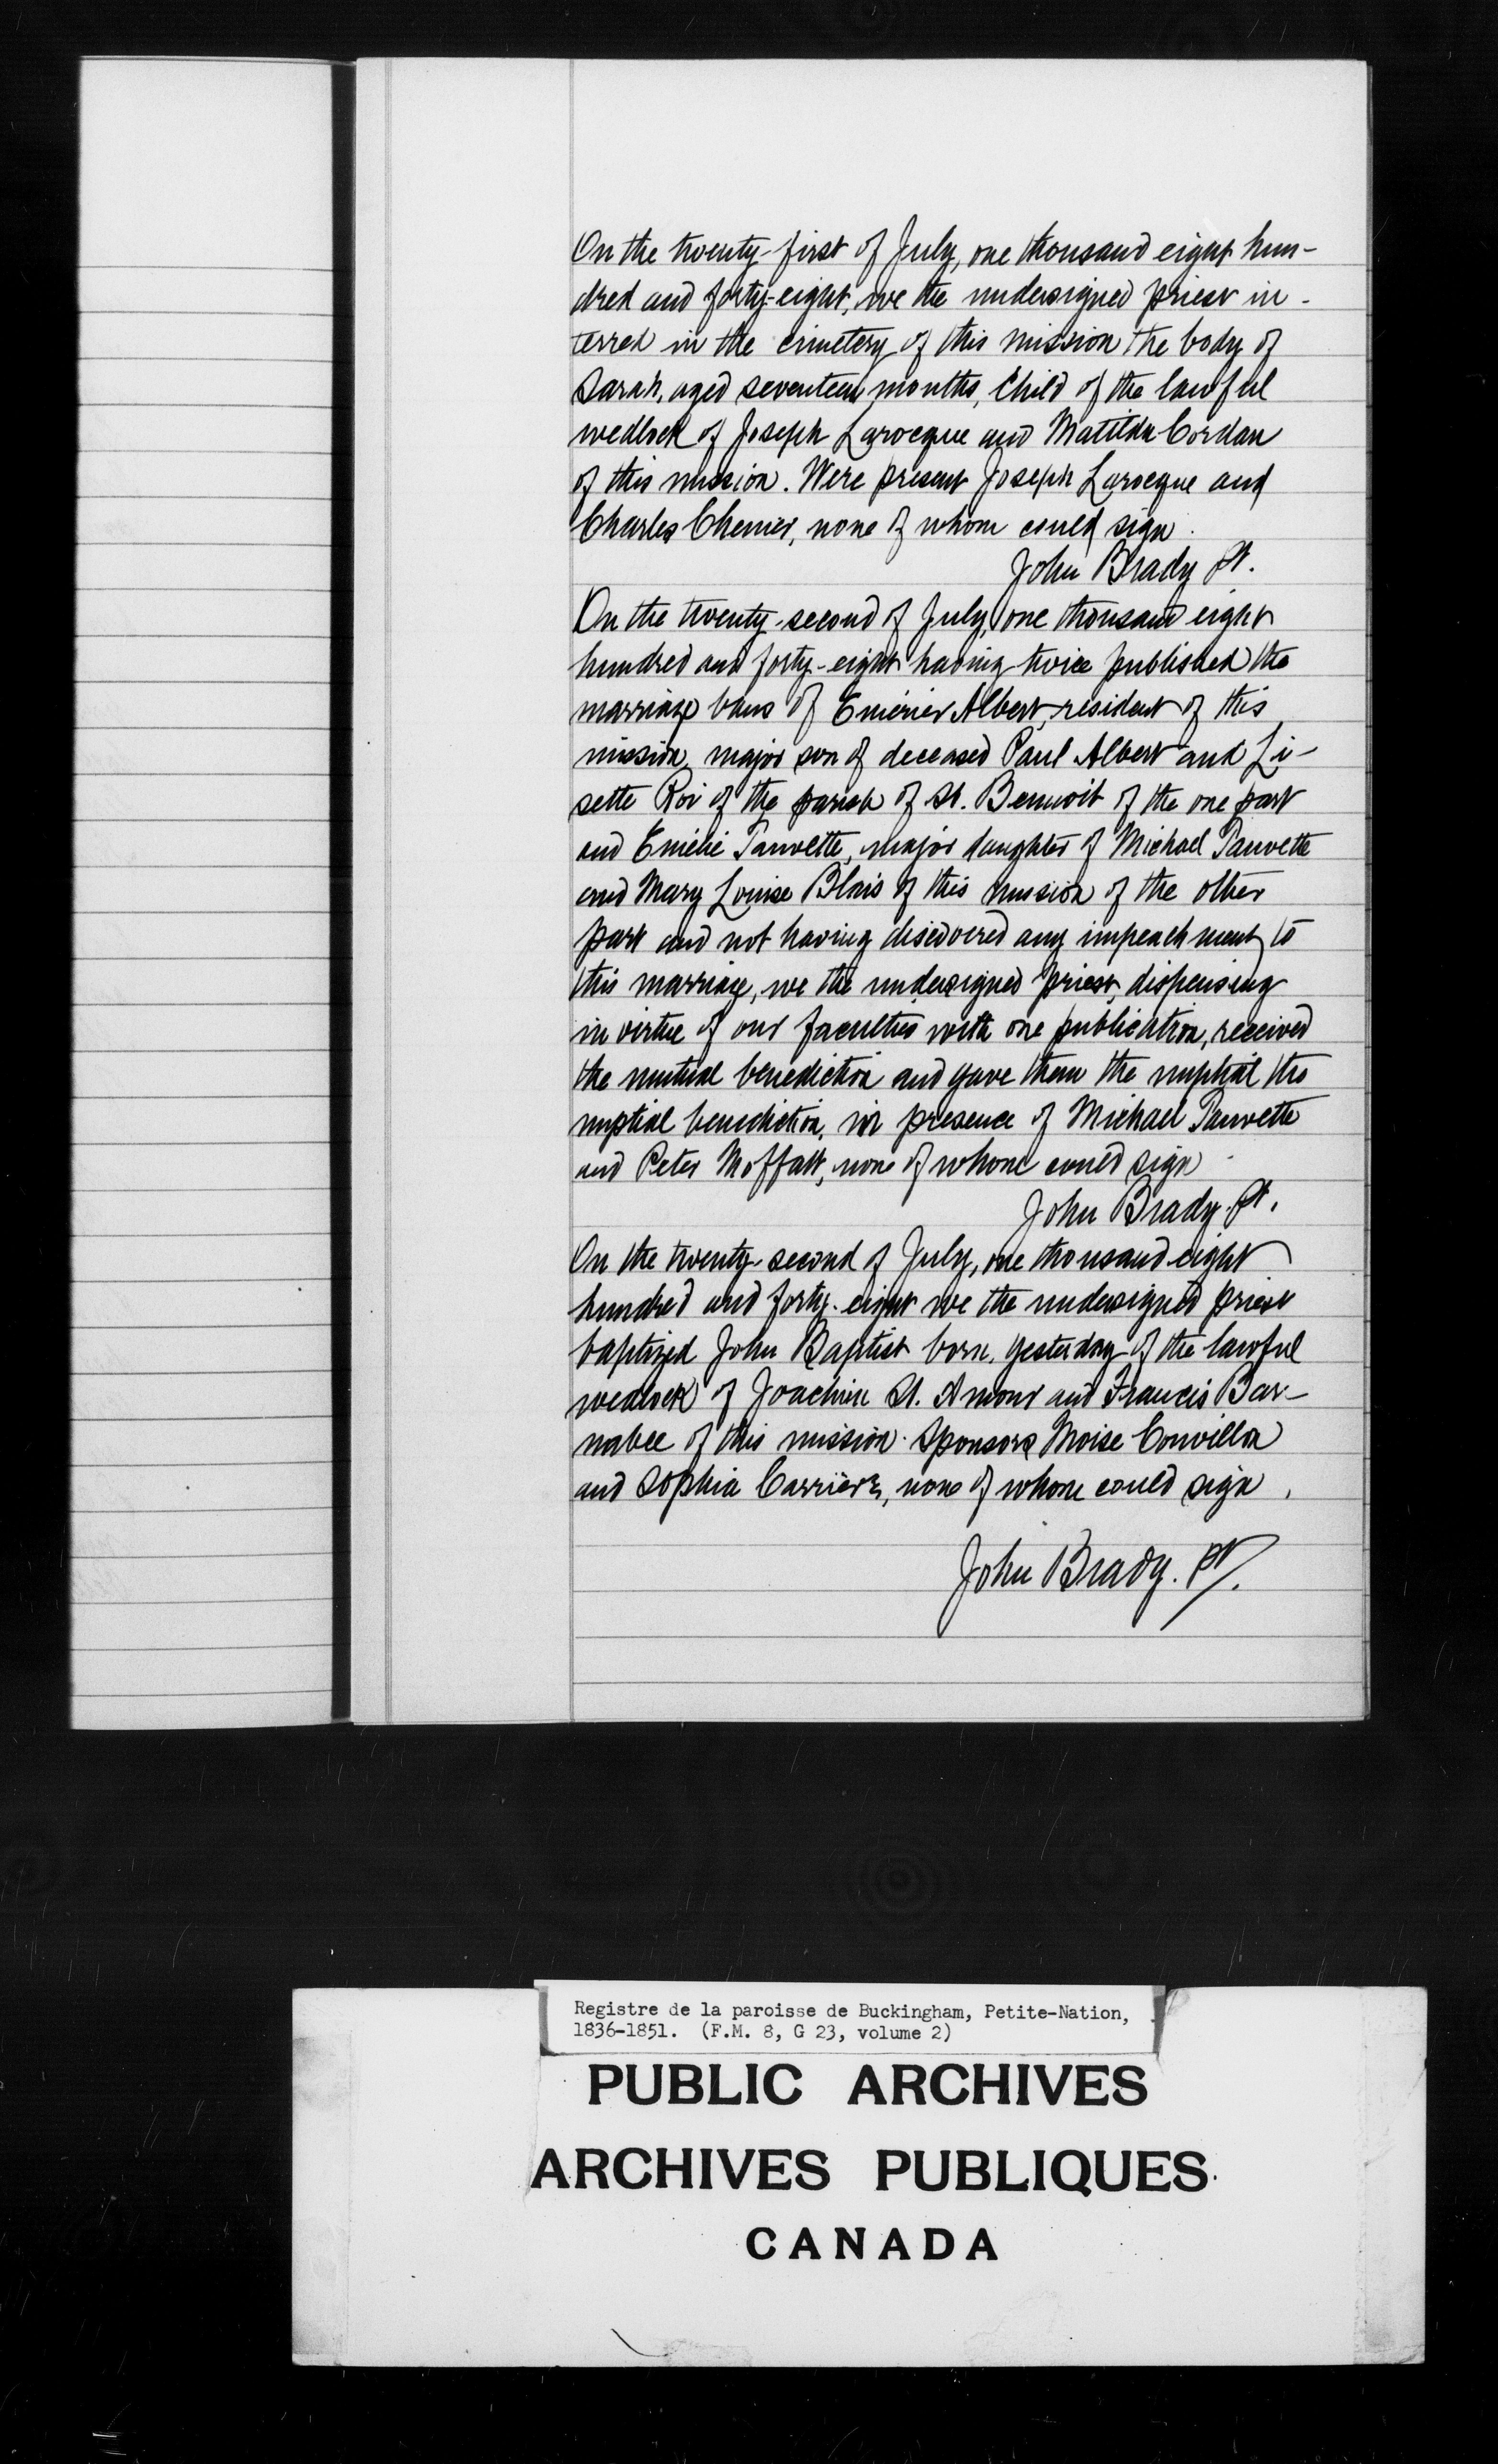 On the twenty-first of July, one thousand eight hun-
dred and forty-eight, we the undersigned priest in-
terred in the cimetery of this mission the body of
Sarah, aged seventeen months, Child of the lawful
wedlock of Joseph Larocque and Matilda Cordan
of this mission. Were present Joseph Larocque and
Charles Chenier, none of whom could sign.
John Brady Pt.
On the twenty-second of July, one thousand eight
hundred and forty-eight having twice published the
marriage bans of Emérier Albert, resident of this
mission, major son of deceased Paul Albert and Li-
sette Roi of the parish of St. Bennoit of the one part
and Emélie Pauvette, major daughter of Michael Pauvette
and Mary Louise Blais of this mission of the other
part and not having discovered any impeachment to
this marriage, we the undersigned priest, dispensing
in virtue of our faculties with one publication, received
the mutual benediction and gave them the nuptial the
nuptial benediction, in presence of Michael Pauvette
and Peter Moffatt, none of whom could sign
John Brady. Pt.
On the twenty-second of July, one thousand eight
hundred and forty-eight we the undersigned priest
baptized John Baptist born, yesterday of the lawful
wedlock of Joachim St. Amour and Francis Bar-
nabee of this mission. Sponsors Moise Couvillon
and Sophia Carrière, none of whom could sign.
John Brady. pt.
Registre de la paroisse de Buckingham, Petite-Nation,
1836-1851. (F.M. 8, G 23, volume 2)
PUBLIC ARCHIVES
ARCHIVES PUBLIQUES
CANADA